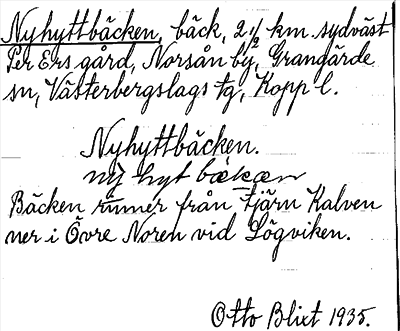 Nyhyttbäcken, bäck, 2 1/2 km. sydväst
Per Ers gård, Norsån by, Grangärde
sn, Västerbergslags tg, Kopp l.
Nyhyttbäcken.
Bäcken rinner från tjärn Kalven
ner i Övre Noren vid Lögviken.
Otto Blixt 1935.